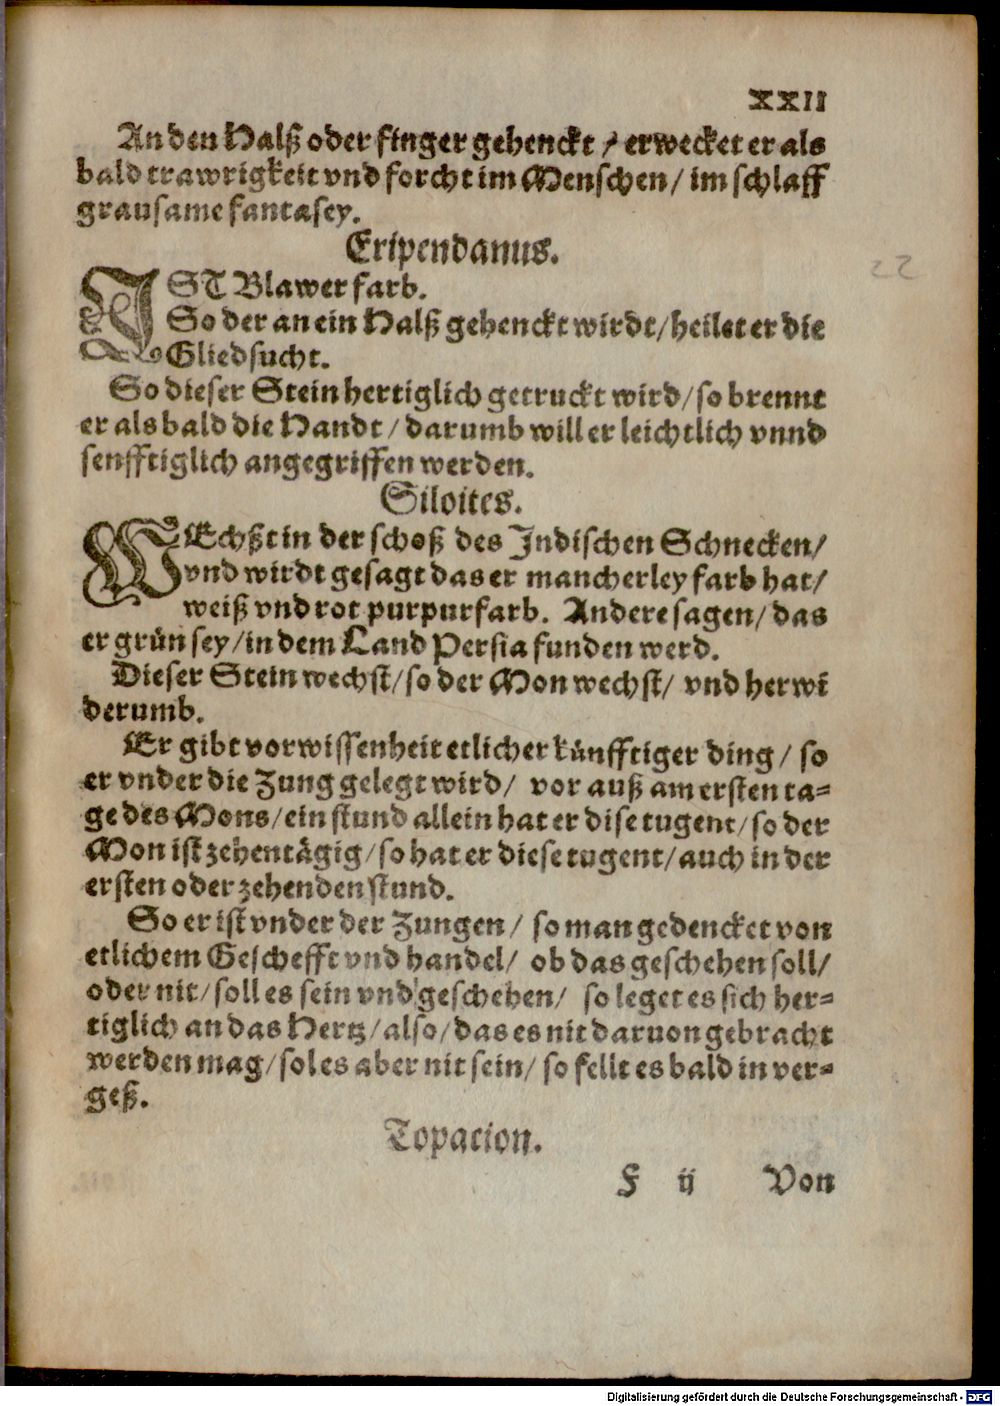 XXII
An den Halß oder finger gehenckt / erwecket er als
bald trawrigkeit vnd forcht im Menschen / im schlaff
grausame fantasey.
Eripendanus.
22
IST Blawer farb.
So der an ein Halß gehenckt wirdt / heilet er die
Gliedsucht.
So dieser Stein hertiglich getruckt wird / so brennt
er als bald die Handt / darumb will er leichtlich vnnd
senfftiglich angegriffen werden.
Siloites.
WEchßt in der schoß des Indischen Schnecken /
vnd wirdt gesagt das er mancherley farb hat /
weiß vnd rot purpurfarb. Andere sagen / das
er grün sey / in dem Land Persia funden werd.
Dieser Stein wechst / so der Mon wechst / vnd herwi
derumb.
Er gibt vorwissenheit etlicher künfftiger ding / so
er vnder die Zung gelegt wird / vor auß am ersten ta=
ge des Mons / ein stund allein hat er dise tugent / so der
Mon ist zehentägig / so hat er diese tugent / auch in der
ersten oder zehenden stund.
So er ist vnder der Zungen / so man gedencket von
etlichem Geschefft vnd handel / ob das geschehen soll /
oder nit / soll es sein vnd geschehen / so leget es sich her=
tiglich an das Hertz / also / das es nit daruon gebracht
werden mag / sol es aber nit sein / so fellt es bald in ver=
geß.
Topacion.
F ij Von
Digitalisierung gefördert durch die Deutsche Forschungsgemeinschaft - DFG